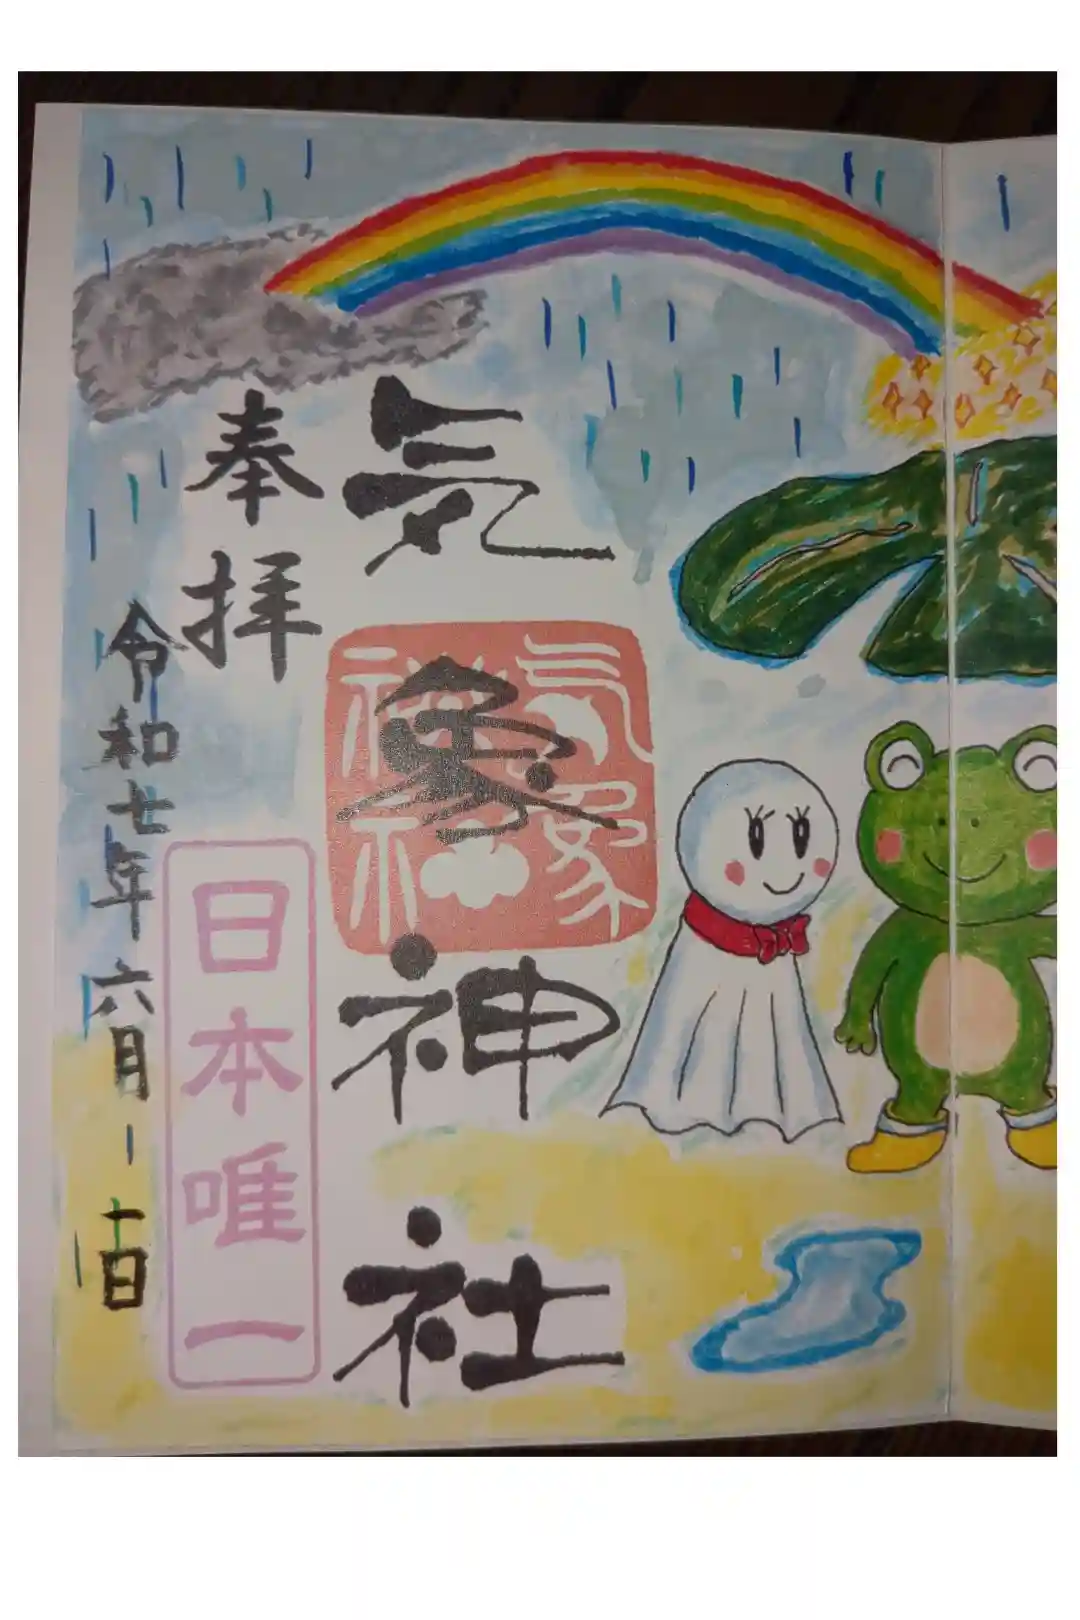 気象神社
気象神社
奉拝
日本唯一
令和七年六月 日